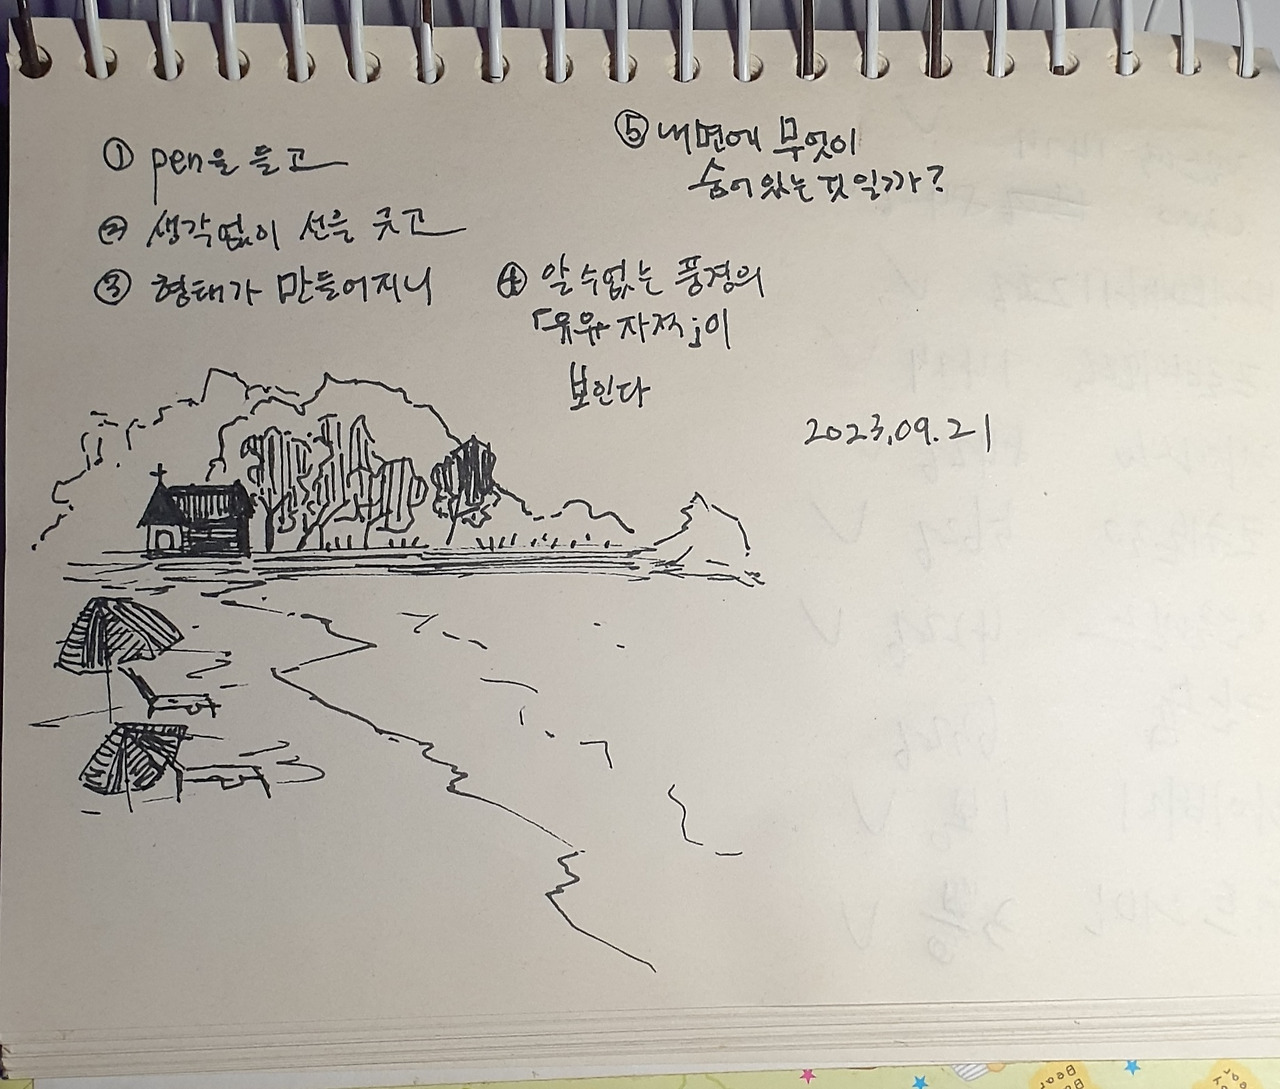 ① pen을 들고
② 생각없이 선을 긋고
③ 형태가 만들어지니
④ 알 수 없는 풍경의
「유유자적」이
보인다
⑤ 내면에 무엇이
숨어 있는 것 일까?
2023.09.21